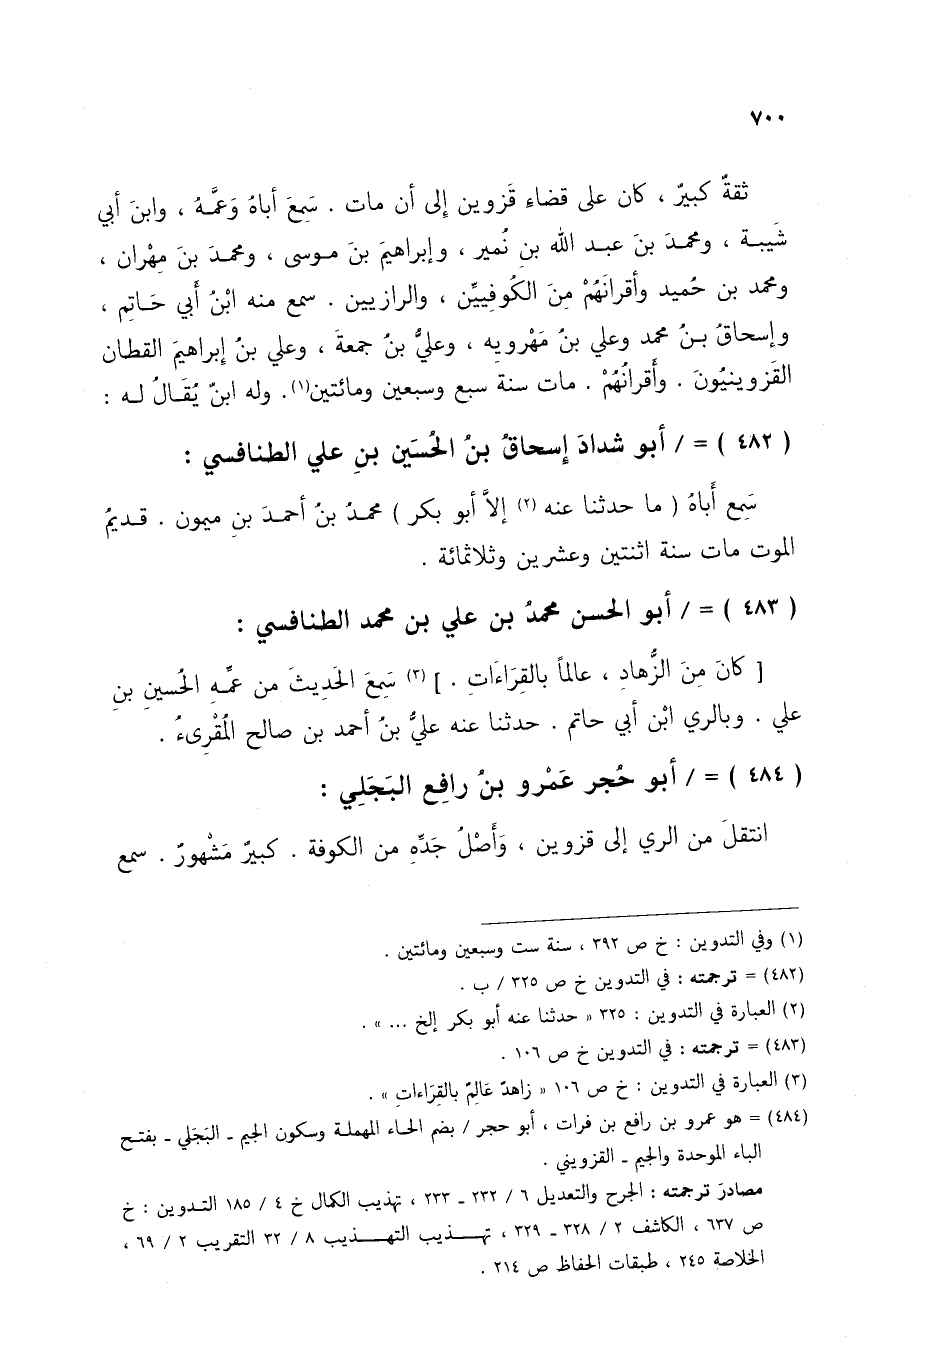 ٧٠٠
ثقةٌ كبيرٌ ، كان على قضاءِ قَزوين إلى أن مات . سَمِعَ أباهُ وَعمَّهُ ، وابنَ أبي
شَيبة ، ومحمدَ بنَ عبد الله بنِ نُمير ، وإبراهيمَ بنَ موسى ، ومحمدَ بنَ مِهْران ،
ومحمد بن حُميد وأقرانَهُمْ مِنَ الكُوفيِّين ، والرازيين . سمع منه ابْنُ أَبي حَاتِم ،
وإسحاقُ بنُ محمد وعلي بنُ مَهْرويه ، وعليُّ بنُ جمعةَ ، وعلي بنُ إبراهيمَ القطان
القَزوينيُونَ . وأَقرانُهُمْ . مات سنة سبع وسبعين ومائتين(١). وله ابنٌ يُقَالُ له :
( ٤٨٢ ) = / أبو شدادَ إسحاقُ بنُ الحُسَين بنِ علي الطنافسي :
سَمِع أَباهُ ( ما حدثنا عنه (٢) إلاَّ أبو بكر ) محمدُ بنُ أحمدَ بنِ ميمون . قديمُ
الموت مات سنة اثنتين وعشرين وثلاثمائة .
( ٤٨٣ ) = / أبو الحسن محمدُ بن علي بن محمد الطنافسي :
[ كانَ مِنَ الزُّهادِ ، عالماً بالقِرَاءَاتِ . ] (٣) سَمِعَ الحَدِيثَ من عمِّهِ الحُسينِ بنِ
علي . وبالري ابْن أبي حاتم . حدثنا عنه عليُّ بنُ أحمد بن صالح المُقْرِىءُ .
( ٤٨٤ ) = / أبو حُجر عَمْرو بنُ رافِع البَجَلِي :
انتقلَ من الري إلى قزوين ، وَأَصْلُ جَدِّهِ من الكوفة . كبيرٌ مَشْهورٌ . سمع
(١) وفي التدوين : خ ص ٣٩٢ ، سنة ست وسبعين ومائتين .
(٤٨٢) = ترجمته : في التدوين خ ص ٣٢٥ / ب .
(٢) العبارة في التدوين : ٣٢٥ « حدثنا عنه أبو بكر إلخ ... » .
(٤٨٣) = ترجمته : في التدوين خ ص ١٠٦ .
(٣) العبارة في التدوين : خ ص ١٠٦ « زاهدٌ عَالِمٌ بالقِرَاءاتِ » .
(٤٨٤) = هو عمرو بن رافع بن فرات ، أبو حجر / بضم الحاء المهملة وسكون الجيم ـ البَجَلي ـ بفتح
الباء الموحدة والجيم ـ القزويني .
مصادرَ ترجمته : الجرح والتعديل ٦ / ٢٣٢ ـ ٢٣٣ ، تهذيب الكمال خ ٤ / ١٨٥ التدوين : خ
ص ٦٣٧ ، الكاشف ٢ / ٣٢٨ ـ ٣٢٩ ، تهذيب التهذيب ٨ / ٣٢ التقريب ٢ / ٦٩ ،
الخلاصة ٢٤٥ ، طبقات الحفاظ ص ٢١٤ .